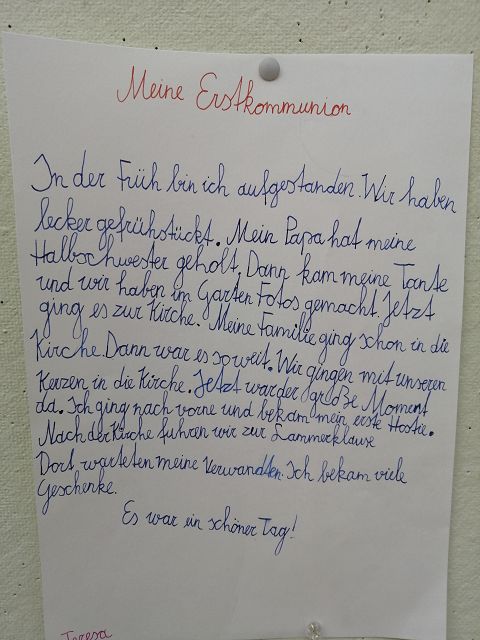 Meine Erstkommunion
In der Früh bin ich aufgestanden. Wir haben
lecker gefrühstückt. Mein Papa hat meine
Halbschwester geholt. Dann kam meine Tante
und wir haben im Garten Fotos gemacht. Jetzt
ging es zur Kirche. Meine Familie ging schon in die
Kirche. Dann war es so weit. Wir gingen mit unseren
Kerzen in die Kirche. Jetzt war der große Moment
da. Ich ging nach vorne und bekam mein erste Hostie.
Nach der Kirche fuhren wir zur Lammerklause
Dort warteten meine Verwandten. Ich bekam viele
Geschenke.
Es war ein schöner Tag!
Teresa